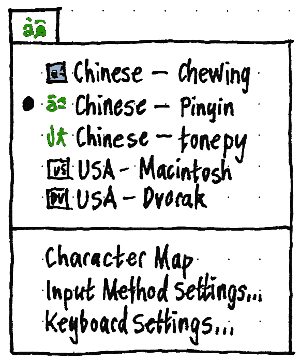 Chinese – Chewing
Chinese – Pinyin
Chinese – tonepy
USA – Macintosh
DV USA – Dvorak
Character Map
Input Method Settings...
Keyboard Settings...